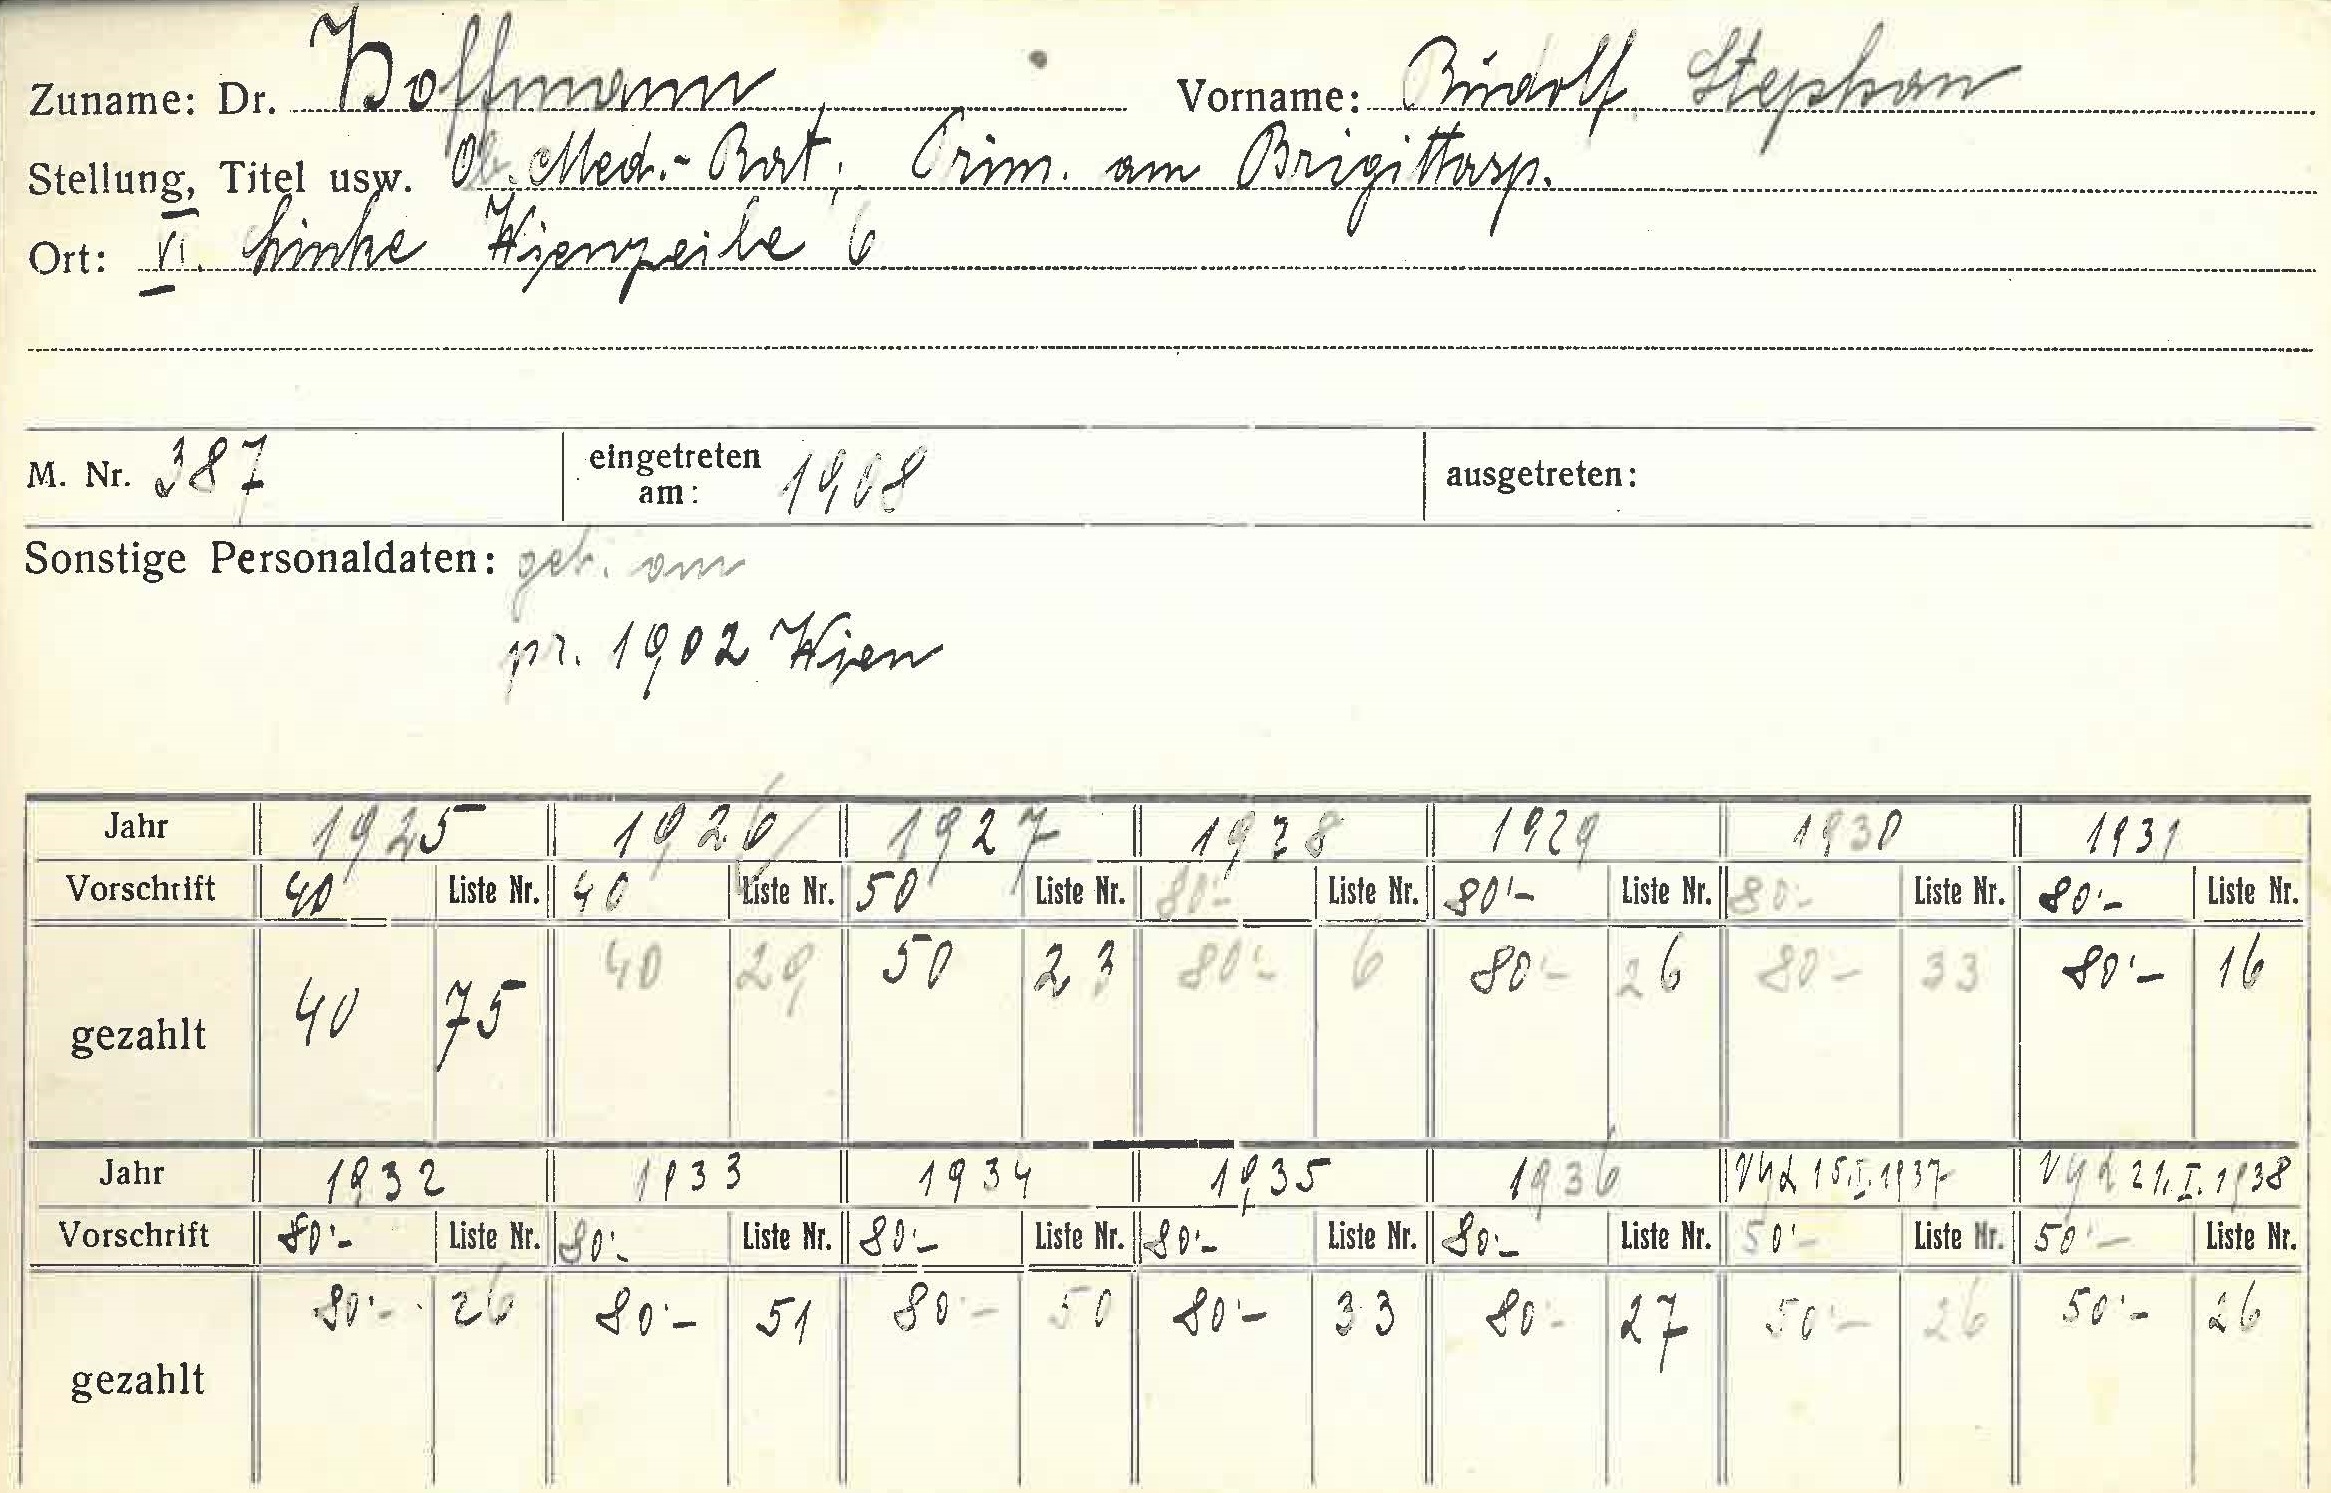 Zuname: Dr. Hoffmann Vorname: Rudolf Stephan
Stellung, Titel usw. Ob. Med.-Rat; Prim. am Brigittasp.
Ort: VI. Linke Wienzeile 6
M. Nr. 387 eingetreten am: 1908 ausgetreten:
Sonstige Personaldaten: geb. am
pr. 1902 Wien
Jahr 1925 1926 1927 1928 1929 1930 1931
Vorschrift 40 Liste Nr. 40 Liste Nr. 50 Liste Nr. 80'- Liste Nr. 80'- Liste Nr. 80'- Liste Nr. 80'- Liste Nr.
gezahlt 40 75 40 29 50 23 80'- 6 80'- 26 80'- 33 80'- 16
Jahr 1932 1933 1934 1935 1936 15.I.1937 21.I.1938
Vorschrift 80'- Liste Nr. 80'- Liste Nr. 80'- Liste Nr. 80'- Liste Nr. 80'- Liste Nr. 50'- Liste Nr. 50'- Liste Nr.
gezahlt 80'- 26 80'- 51 80'- 50 80'- 33 80'- 27 50'- 26 50'- 26